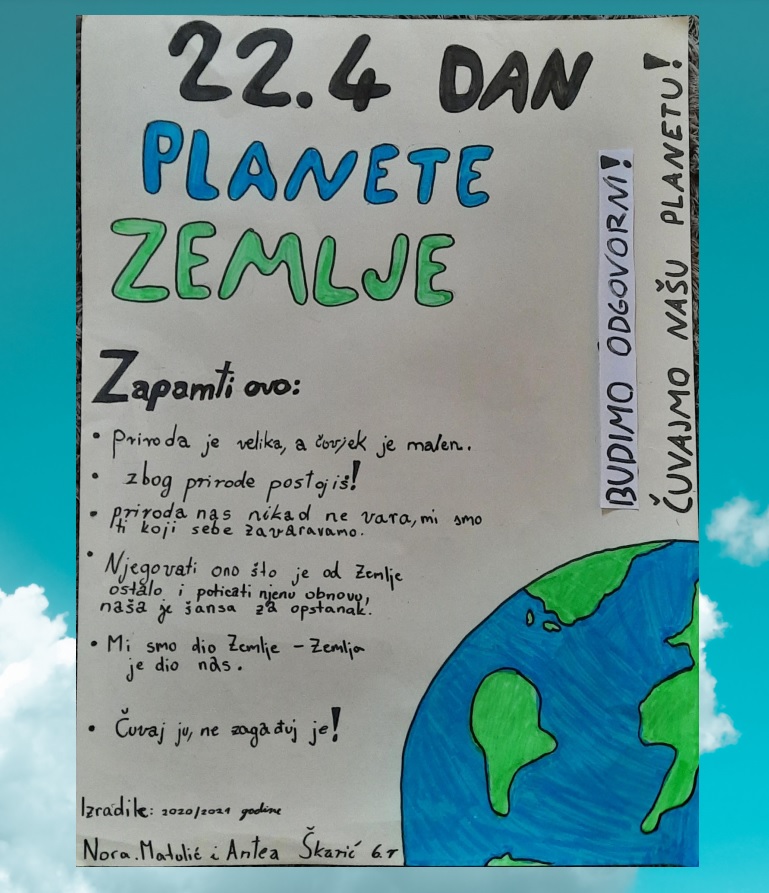 22.4 DAN
PLANETE
ZEMLJE
BUDIMO ODGOVORNI!
ČUVAJMO NAŠU PLANETU!
Zapamti ovo:
• priroda je velika, a čovjek je malen.
• zbog prirode postojiš!
• priroda nas nikad ne vara, mi smo
ti koji sebe zavaravamo.
• Njegovati ono što je od Zemlje
ostalo i poticati njenu obnovu,
naša je šansa za opstanak.
• Mi smo dio Zemlje - Zemlja
je dio nas.
• Čuvaj ju, ne zagađuj je!
Izradile: 2020/2021 godine
Nora Matulić i Antea Škarić 6.r